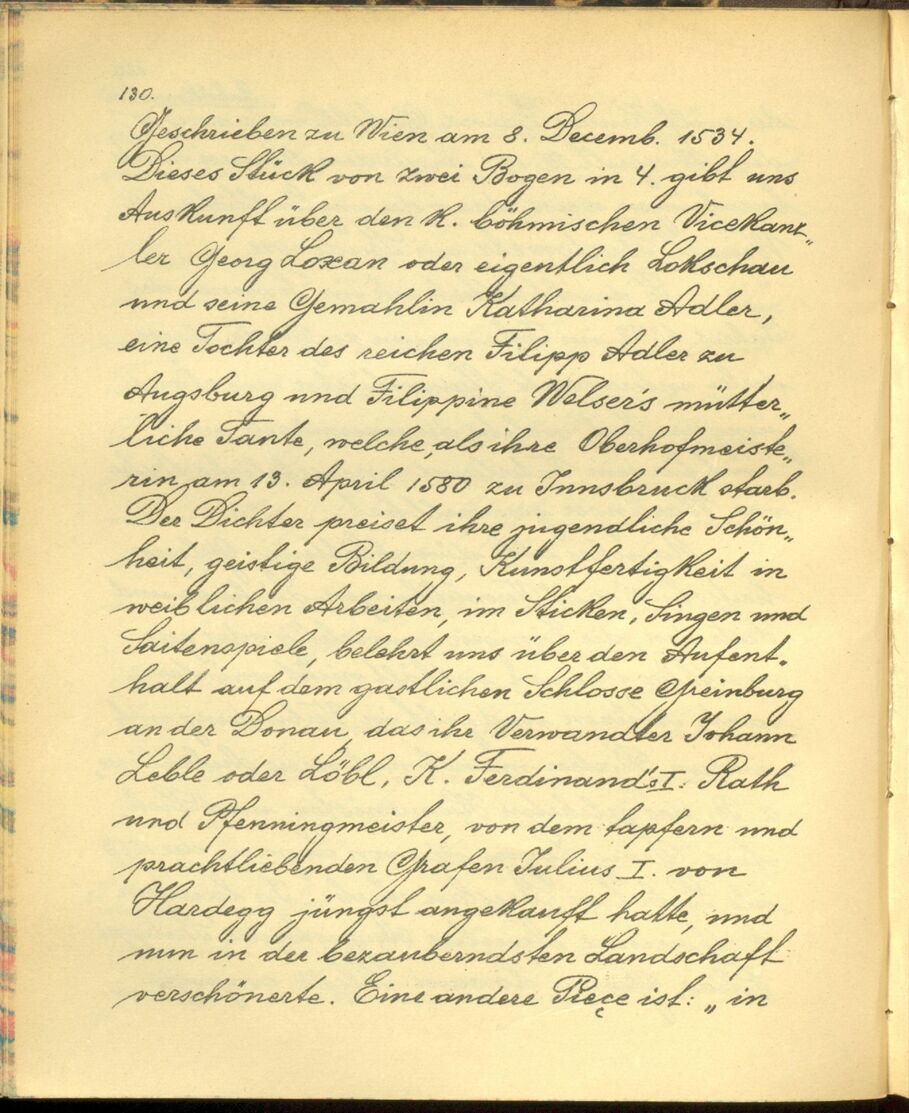 130.
Geschrieben zu Wien am 8. Decemb. 1534.
Dieses Stück von zwei Bogen in 4. gibt uns
Auskunft über den k. böhmischen Vicekanz„
ler Georg Loxan oder eigentlich Lokschau
und seine Gemahlin Katharina Adler,
eine Tochter des reichen Filipp Adler zu
Augsburg und Filippine Welser's mütter„
liche Tante, welche, als ihre Oberhofmeiste„
rin am 13. April 1580 zu Innsbruck starb.
Der Dichter preiset ihre jugendliche Schön„
heit, geistige Bildung, Kunstfertigkeit in
weiblichen Arbeiten, im Sticken, Singen und
Saitenspiele, belehrt uns über den Aufent„
halt auf dem gastlichen Schlosse Greinburg
an der Donau, das ihr Verwandter Johann
Leble oder Löbl, K. Ferdinand's I. Rath
und Pfenningmeister, von dem tapfern und
prachtliebenden Grafen Julius I. von
Hardegg jüngst angekauft hatte, und
nun in der bezauberndsten Landschaft
verschönerte. Eine andere Pieçe ist: „in